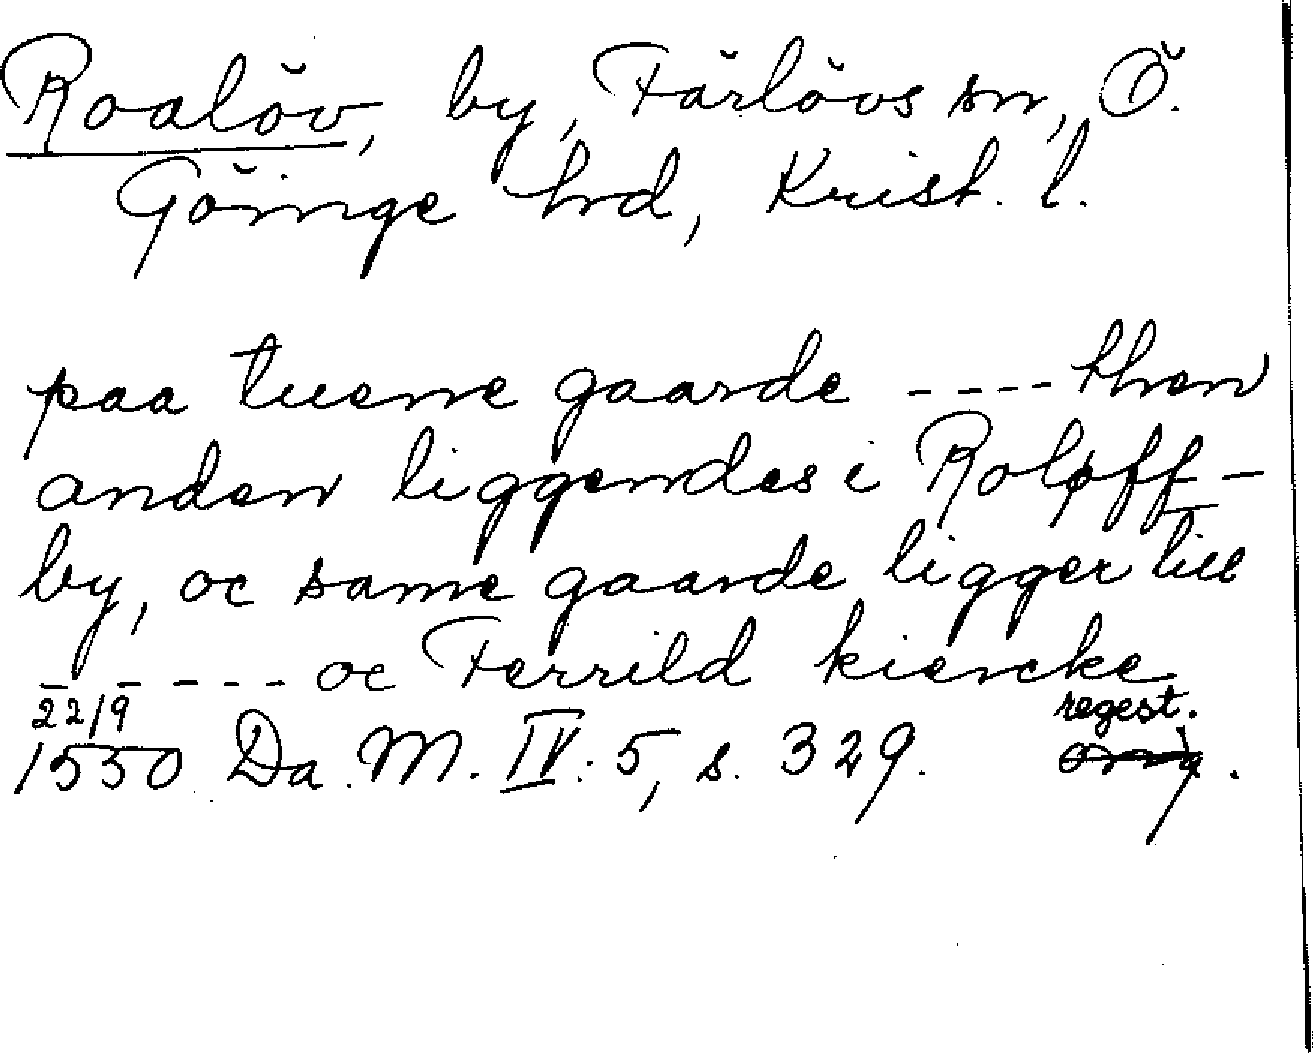 Roalöv, by, Färlövs sn, Ö.
Göinge hrd, Krist. l.
paa tuenne gaarde ---- then
anden liggendes i Roløff-
by, oc same gaarde ligger till
----- oc Ferrild kiercke
22/9 regest.
1550 Da. M. IV: 5, s. 329. orig.